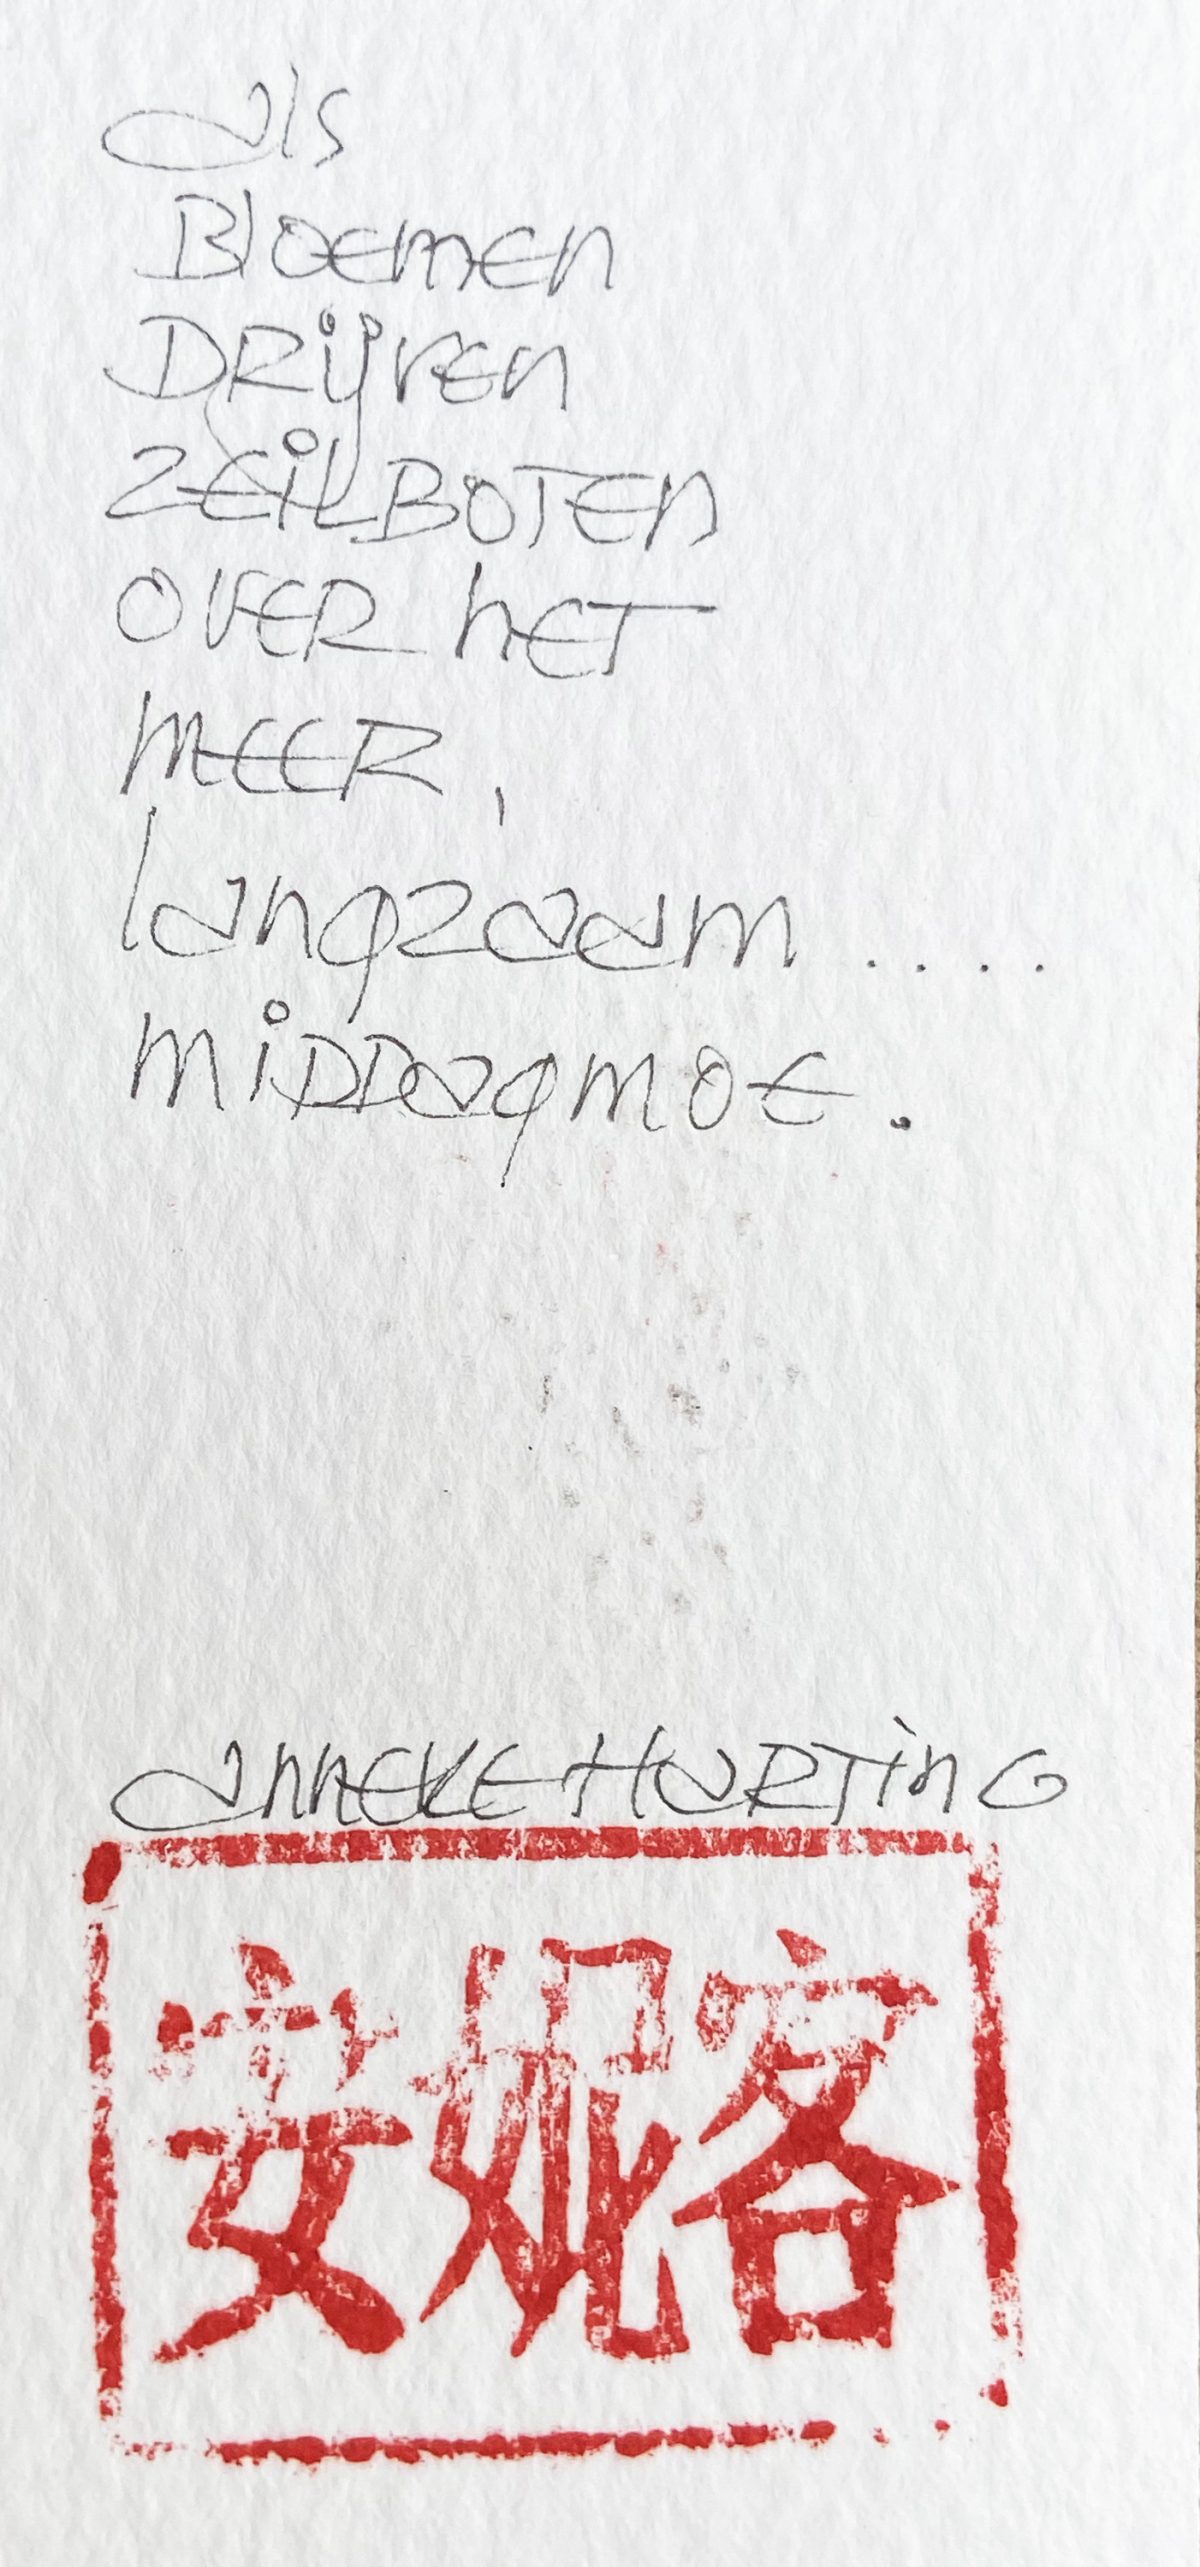 als
Bloemen
DRijven
ZEiLBOTEN
OVER hET
MEER,
langzaam....
MiDDagmoE.
annEKE HaRTinG
安妮客